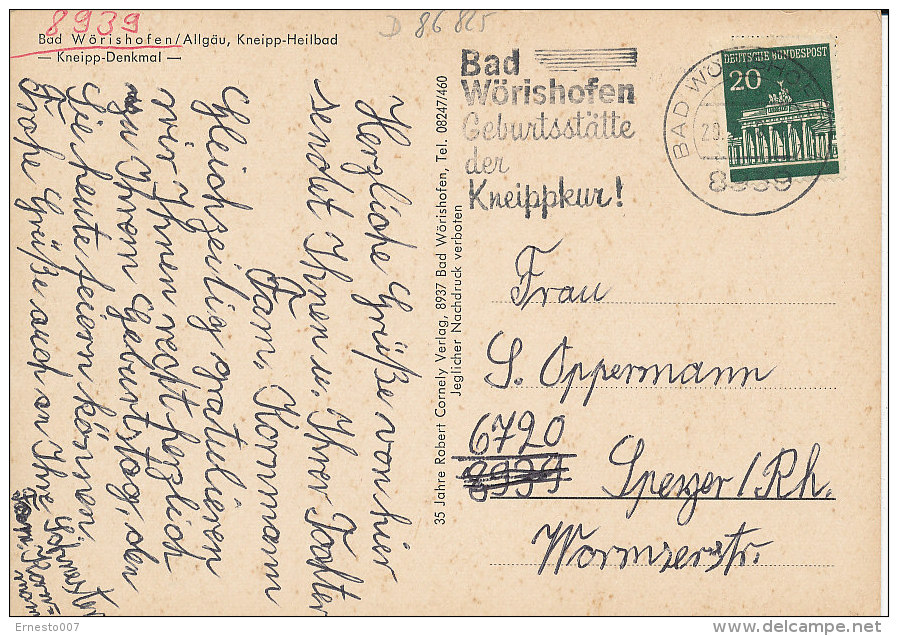 8939
D 86 825
Bad Wörishofen/Allgäu, Kneipp-Heilbad
— Kneipp-Denkmal —
Bad
Wörishofen
Geburtsstätte
der
Kneippkur!
DEUTSCHE BUNDESPOST
20
BAD WÖ
8939
35 Jahre Robert Cornely Verlag, 8937 Bad Wörishofen, Tel. 08247/460
Jeglicher Nachdruck verboten
Herzliche Grüße von hier
sendet Ihnen u. Ihrer Tochter
Fam. Kornmann
Gleichzeitig gratulieren
wir Ihnen recht herzlich
zu Ihrem Geburtstag, den
Sie heute feiern können.
Frohe Grüße auch an Ihre
Frau
S. Oppermann
6720
8939 Speyer/Rh.
Wormserstr.
Ernesto007
delcampe.net